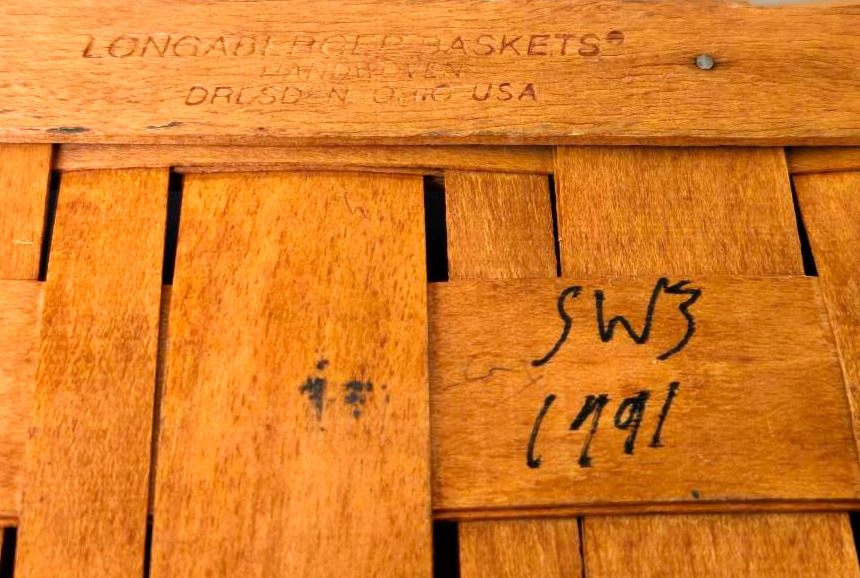 LONGABERGER BASKETS®
HANDWOVEN
DRESDEN, OHIO USA
SWB
1991